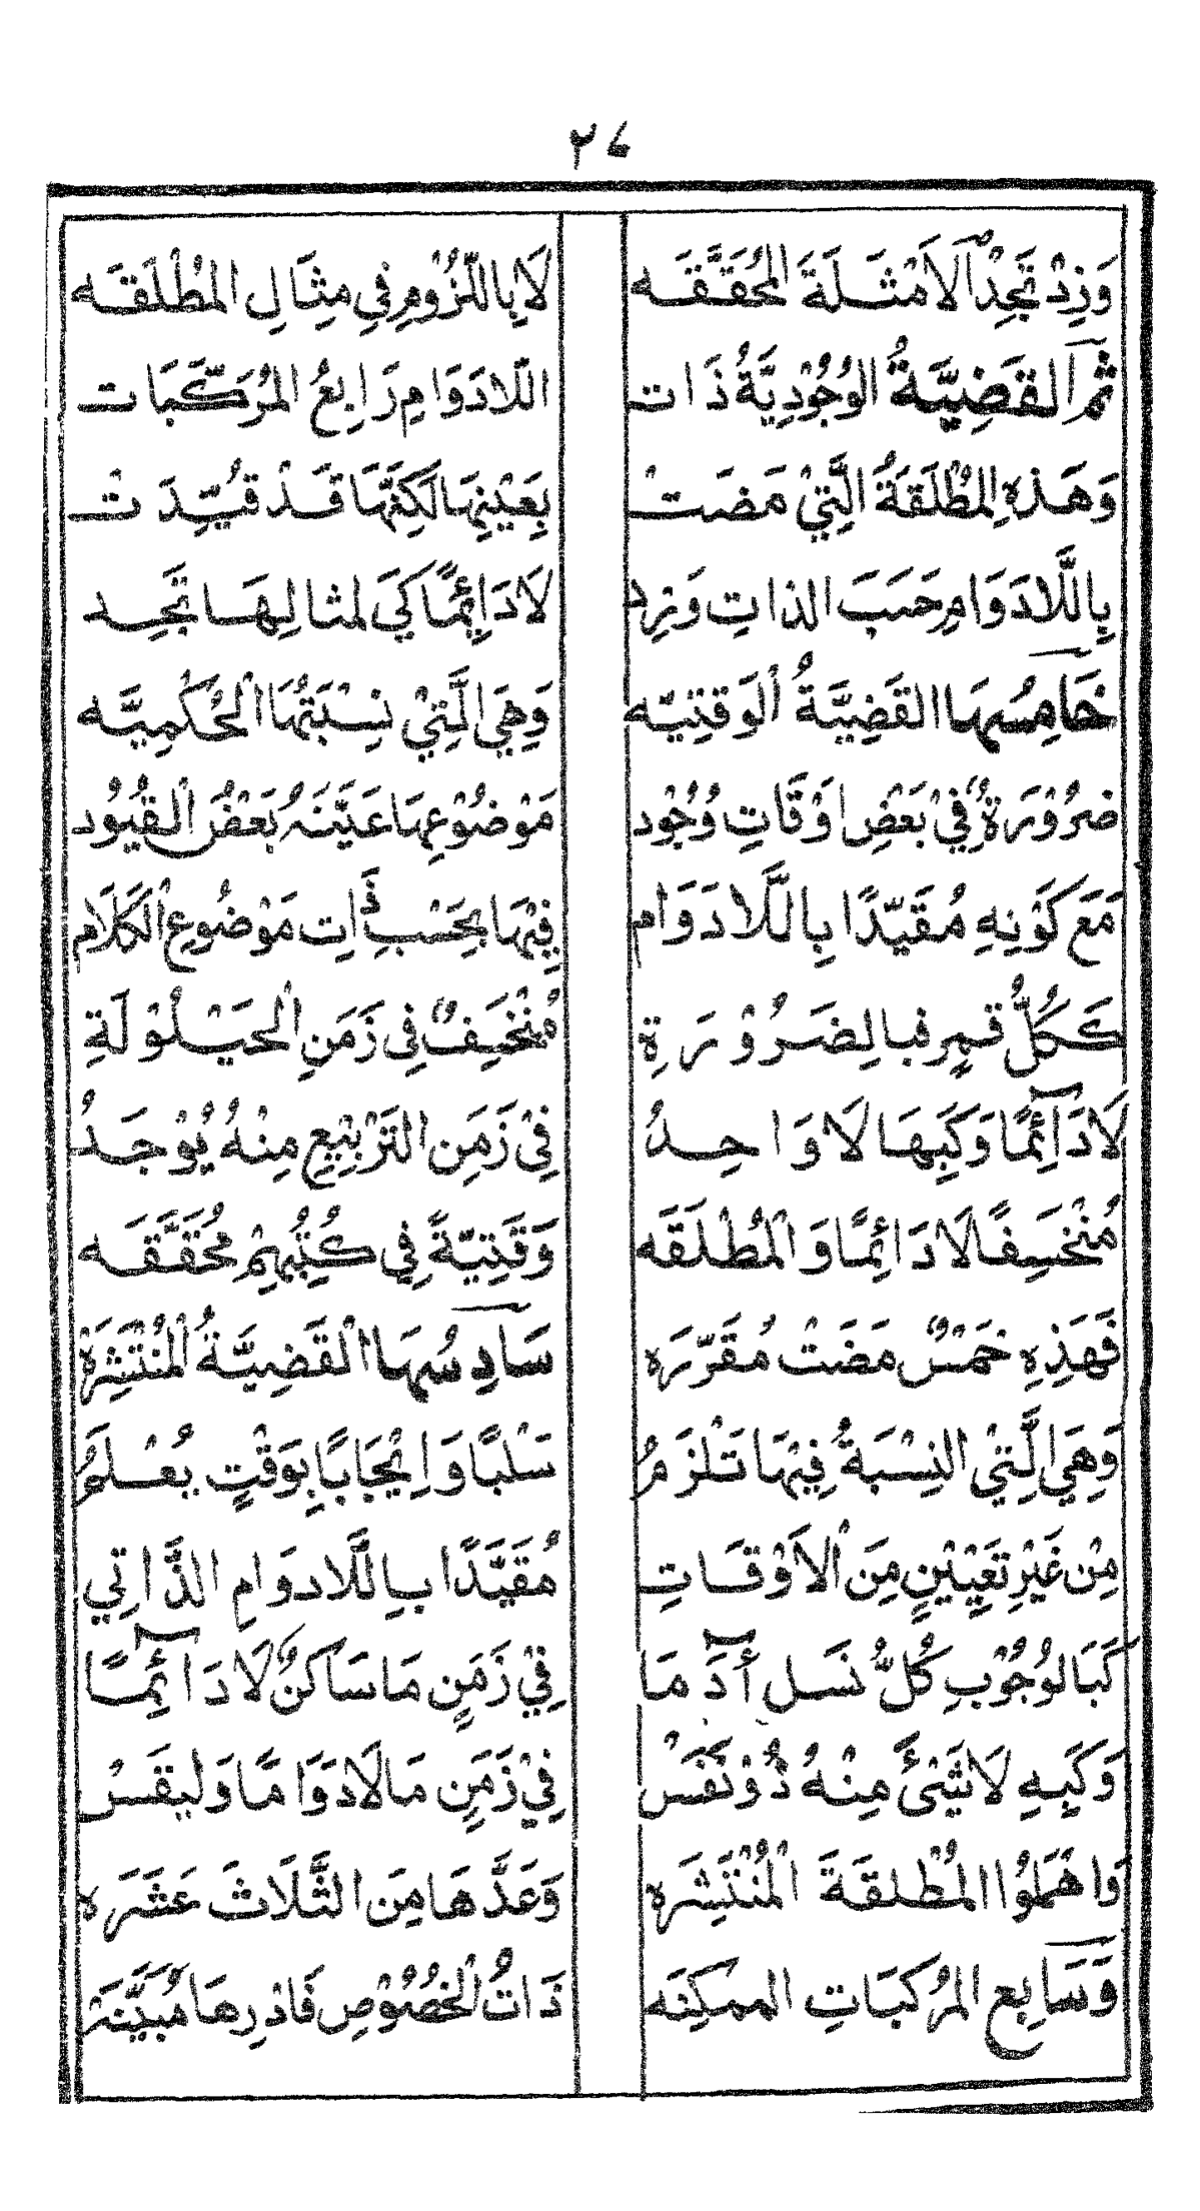 ٢٤
وَزِدْ تَجِدْ الَامْثَلَةَ المُحَقَّقَه لَا بِاللُّزُومِ فِي مِثَالِ المُطْلَقَه
ثُمَّ القَضِيَّةُ الوُجُودِيَّةُ ذَات اللادَوَامِ رَابِعُ المُرَكَّبَات
وَهَذِهِ المُطْلَقَةُ الَّتِيْ مَضَتْ بِعَيْنِهَا لَكِنَّهَا قَدْ قُيِّدَتْ
بِاللَّلادَوَامِ حَسَبَ الذاتِ وَزِد لَا دَائِمًا كَيْ لمثالِهَا تَجِد
خَامِسُهَا القَضِيَّةُ الوَقتِيّه وَهِيَ الَّتِيْ نِسْبَتُهَا الْحُكْمِيَّه
ضَرُوْرَةٌ فِيْ بَعْضِ اَوْقَاتِ وُجُود مَوْضُوْعِهَا عَيَّنَهُ بَعْضُ الْقُيُود
مَعَ كَوْنِهِ مُقَيَّدًا بِاللَّلادَوَام فِيْهَا بِحَسْبِ ذَاتِ مَوْضُوعِ الْكَلَام
كَكُلُّ قَمِرٍ فبالِضَرُوْرَةِ مُنْخَسِفٌ فِي زَمَنِ الْحَيْلُوْلَةِ
لَا دَآئِمًا وَكَبِهَا لَا وَاحِدُ فِيْ زَمَنِ التَرْبِيْعِ مِنْهُ يُوْجَدُ
مُنْخَسِفًا لَا دَائِمًا وَالْمُطْلَقَه وَقْتِيّةً فِي كُتُبِهِمْ مُحَقَّقَه
فَهَذِهِ خَمْسٌ مَضَتْ مُقَرَّرَه سَادِسُهَا الْقَضِيَّةُ الْمُنْتَشِرَة
وَهِيَ الَّتِيْ النِسْبَةُ فِيْهَا تَلْزَمُ سَلْبًا وَاِيْجَابًا بِوَقْتٍ يُعْلَمُ
مِنْ غَيْرِ تَعْيِيْنٍ مِنَ الْاَوْقَاتِ مُقَيَّدًا بِاللَّلادوَامِ الذَّاتِي
كَبَالوُجُوْبِ كُلُّ نَسَلِ أدَمَا فِيْ زَمَنٍ مَا سَاكنٌ لَا دَائِمًا
وَكَبِهِ لَا شَيْئَ مِنْهُ ذُوْ نَفَسْ فِيْ زَمَنٍ مَا لَا دَوَامًا وَليقَسْ
وَاهْمَلُوْا المُطْلَقَةَ الْمُنْتَشِرَه وَعَدَّهَا مِنَ الثَّلَاثَ عَشَرَه
وَسَابِع المُرَكبَاتِ الممكِنَه ذَاتُ الْخُصُوْصِ فَادْرِهَا مُبَيَّنَهْ